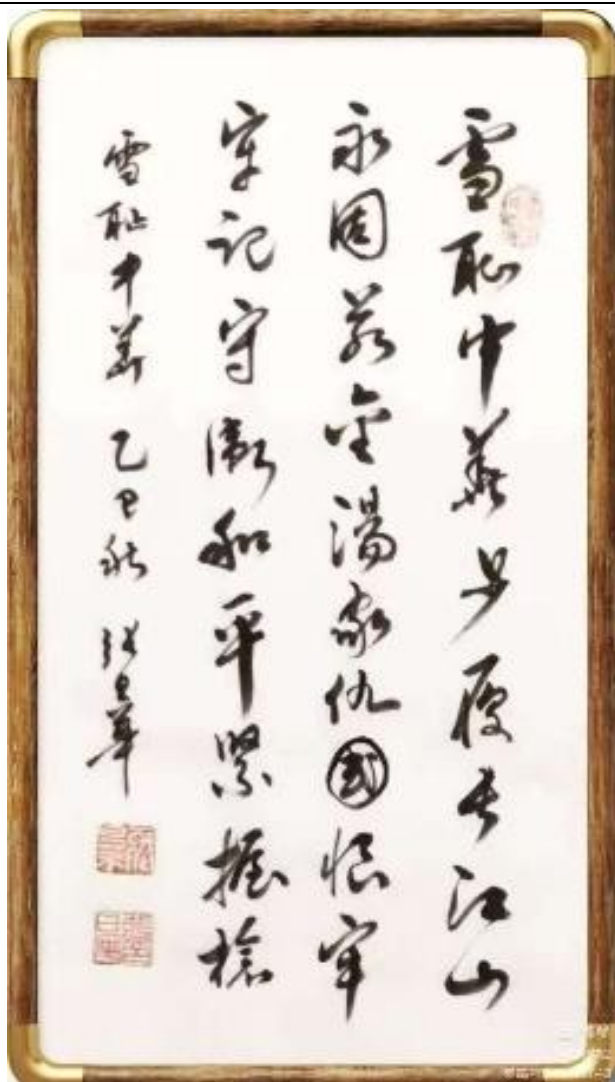 雪耻中華步履长江山
永固若金湯家仇國恨牢
牢記守衛和平緊握槍
雪耻中華 乙巳秋 張 華